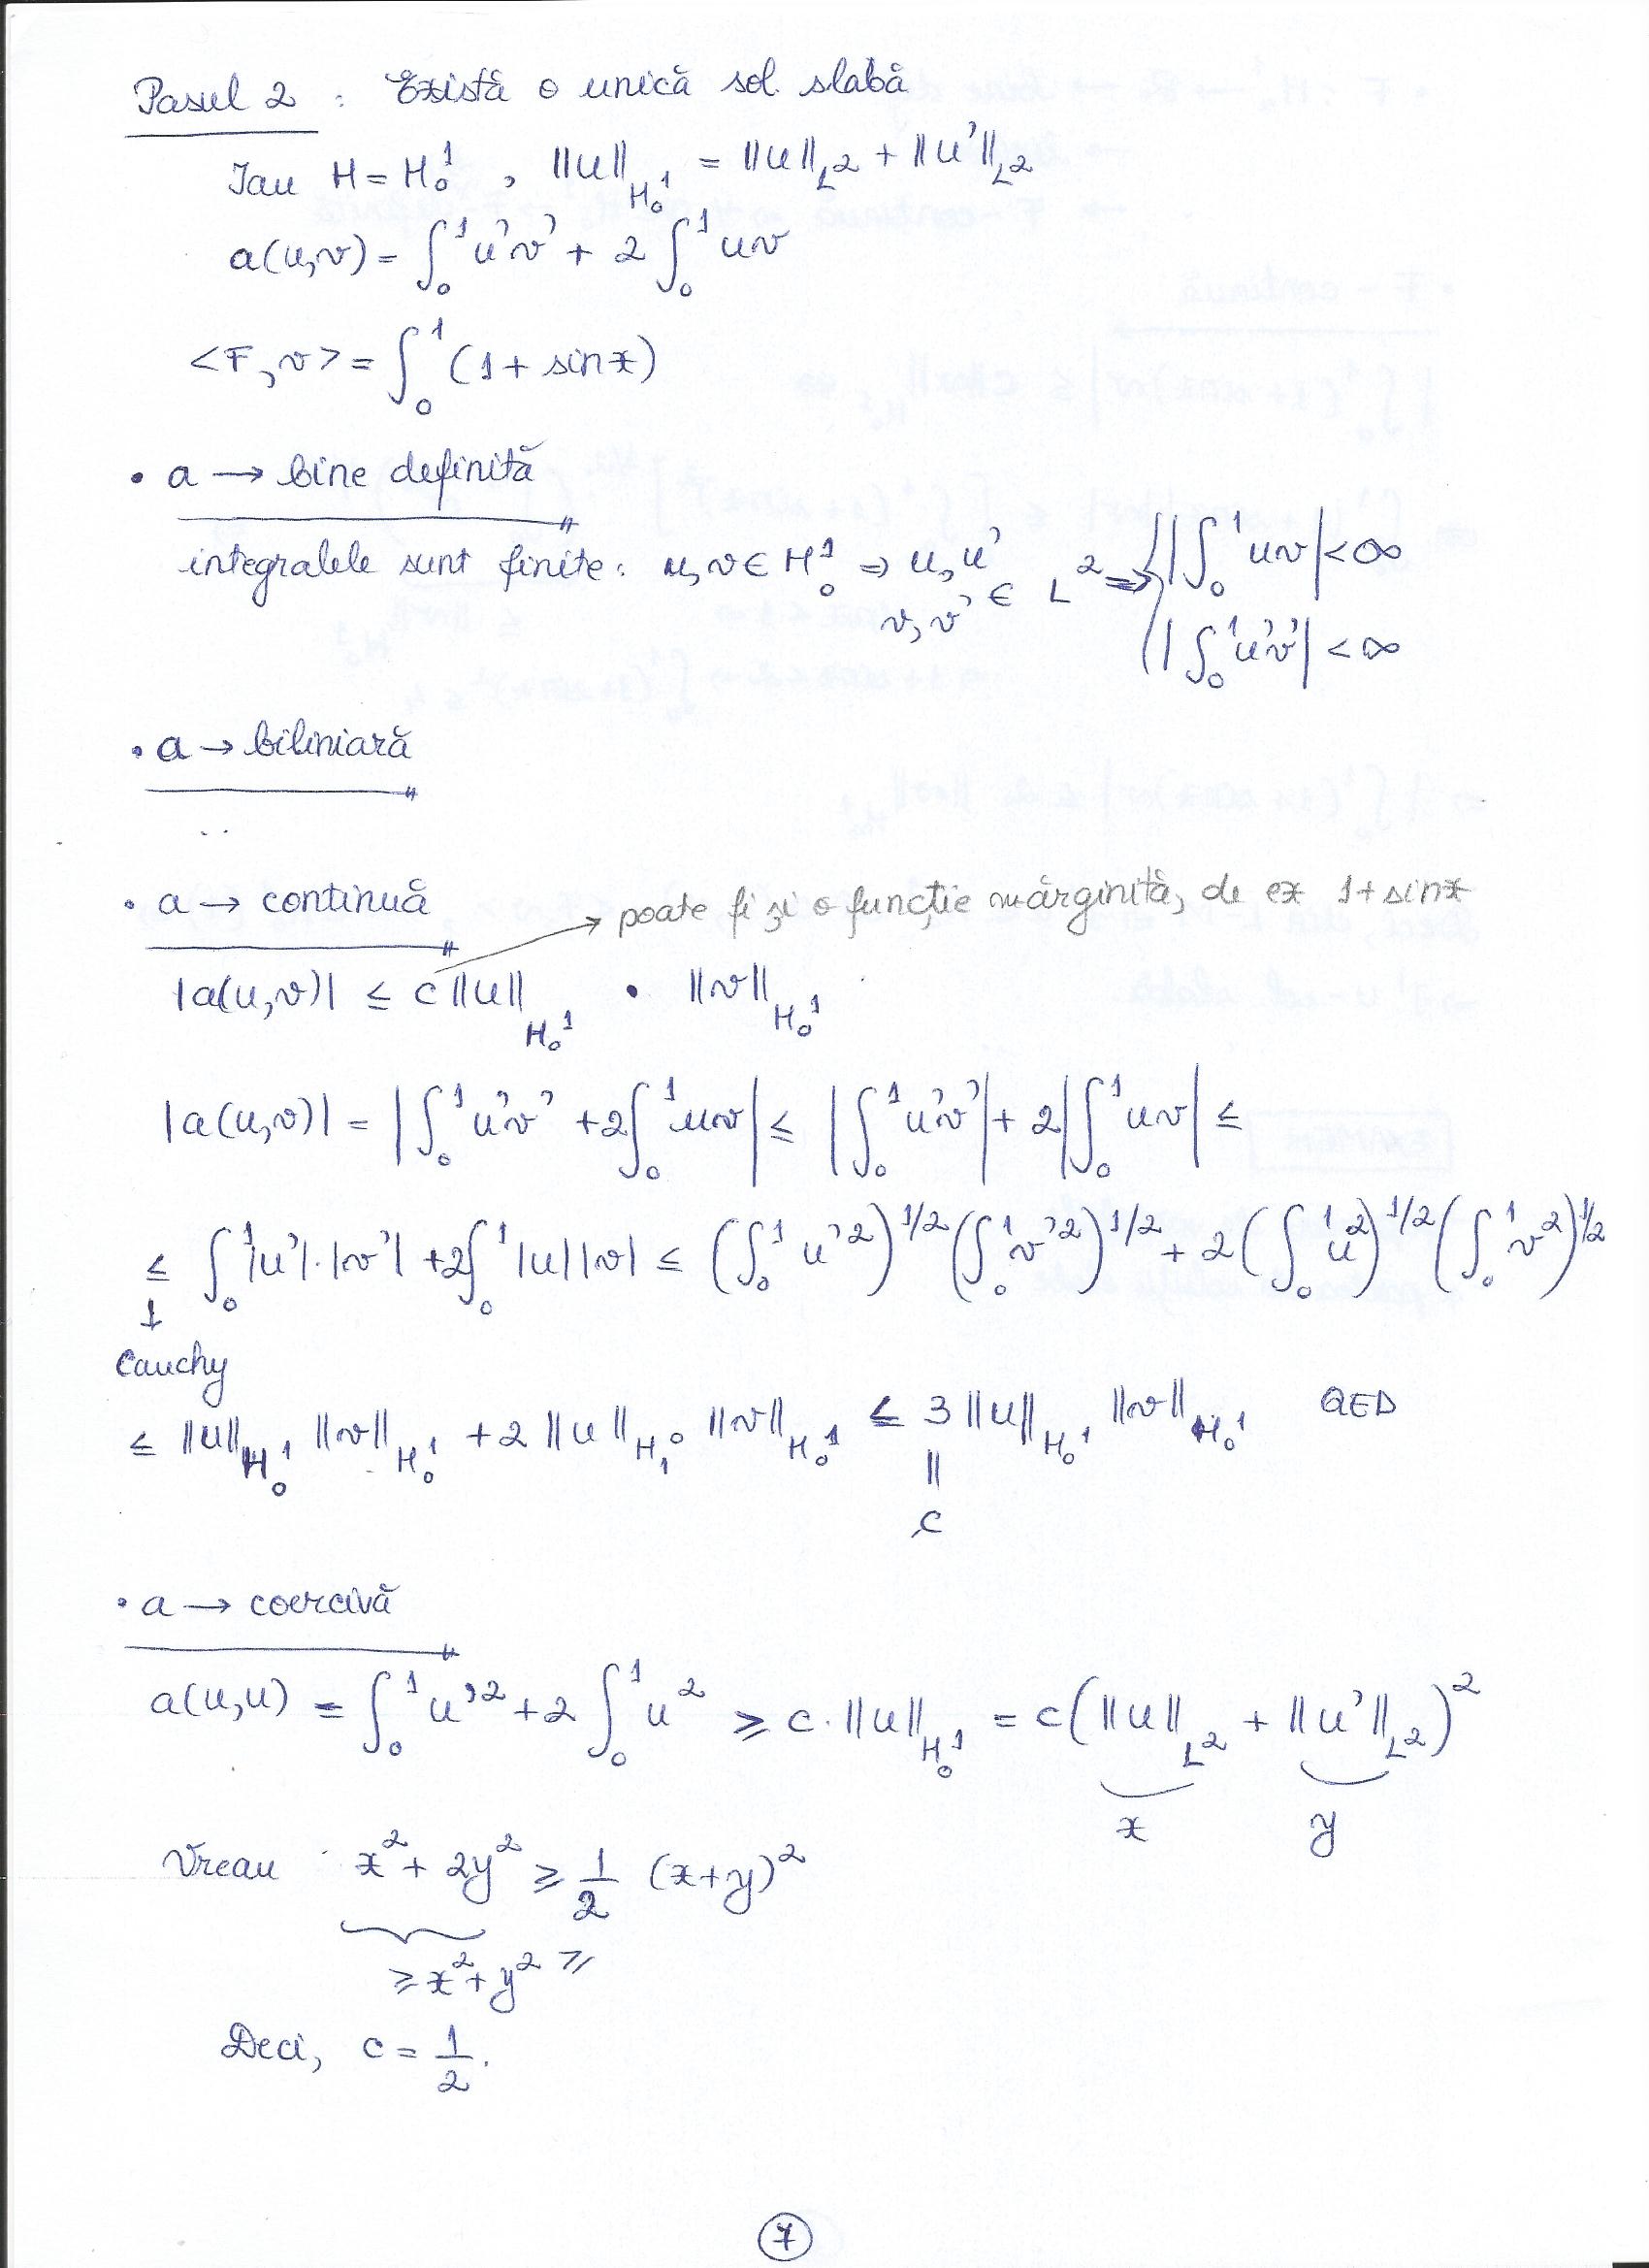 Pasul 2 : Există o unică sol. slabă
Iau H = H₀¹ , ||u||_{H₀¹} = ||u||_{L²} + ||u'||_{L²}
a(u,v) = ∫₀¹ u'v' + 2 ∫₀¹ uv
<F,v> = ∫₀¹ (1 + sin x)
• a → bine definită
integralele sunt finite: u,v ∈ H₀¹ ⇒ u,u' v,v' ∈ L² ⇒ { |∫₀¹ uv| < ∞
|∫₀¹ u'v'| < ∞
• a → biliniară
• a → continuă
→ poate fi și o funcție mărginită, de ex 1 + sin x
|a(u,v)| ≤ c ||u||_{H₀¹} • ||v||_{H₀¹}
|a(u,v)| = |∫₀¹ u'v' + 2∫₀¹ uv| ≤ |∫₀¹ u'v'| + 2|∫₀¹ uv| ≤
≤ ∫₀¹ |u'|·|v'| + 2∫₀¹ |u||v| ≤ (∫₀¹ u'²)^{1/2} (∫₀¹ v'²)^{1/2} + 2 (∫₀¹ u²)^{1/2} (∫₀¹ v²)^{1/2}
Cauchy
≤ ||u||_{H₀¹} ||v||_{H₀¹} + 2 ||u||_{H₁⁰} ||v||_{H₀¹} ≤ 3 ||u||_{H₀¹} ||v||_{H₀¹} QED
||
c
• a → coercivă
a(u,u) = ∫₀¹ u'² + 2 ∫₀¹ u² ≥ c · ||u||_{H₀¹} = c (||u||_{L²} + ||u'||_{L²})²
x y
Vreau x² + 2y² ≥ 1/2 (x+y)²
≥ x² + y² ≥
Deci, c = 1/2.
7